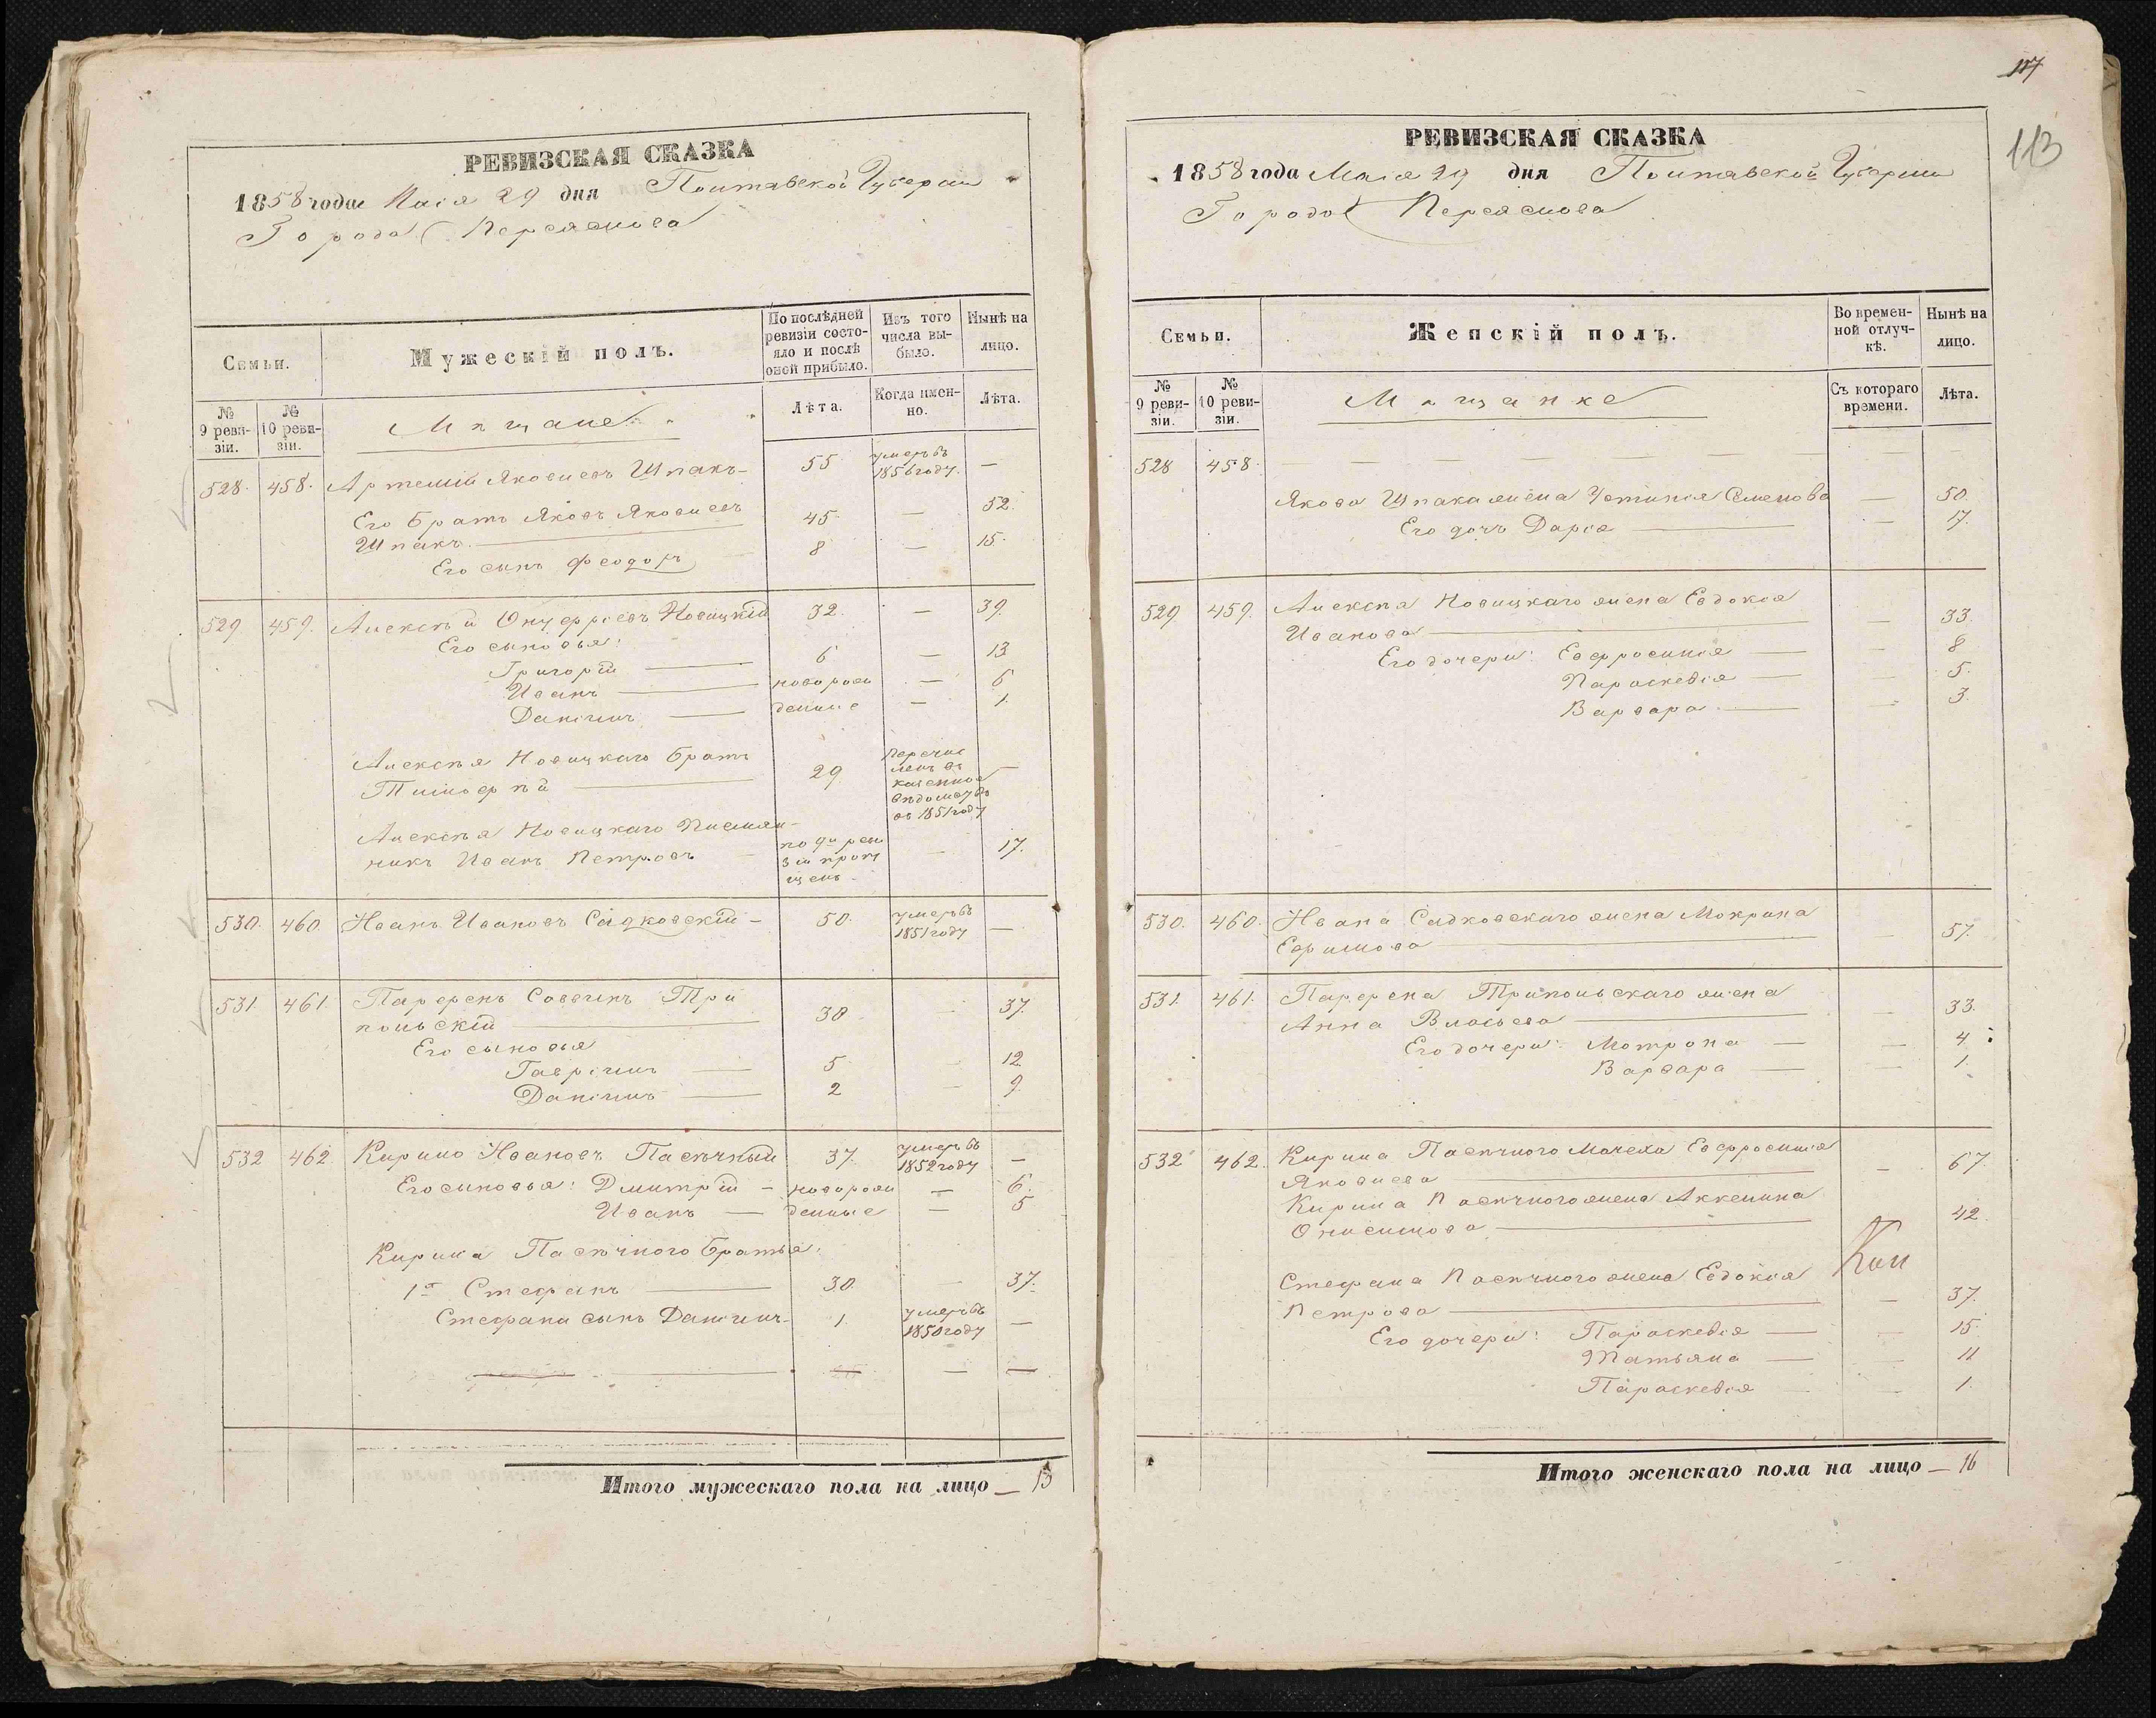 РЕВИЗСКАЯ СКАЗКА
1858 года Маія 29 дня Полтавской Губерніи
Города Переяслова
Семьи.
Мужескій полъ.
По послѣдней ревизіи состояло и послѣ оной прибыло.
Изъ того числа выбыло.
Нынѣ на лицо.
№ 9 ревизіи.
№ 10 ревизіи.
Мѣщане
Лѣта.
Когда именно.
Лѣта.
528. 458. Артемій Яковлевъ Шпакъ 55 умеръ въ 1856 году. —
Его братъ Яковъ Яковлевъ
Шпакъ. 45 — 52.
Его сынъ Феодоръ 8 — 15.
529 459. Алексѣй Онуфріевъ Новицкій 32. — 39.
Его сыновья:
Григорій — 6 — 13
Иванъ — новорож — 6
Даніилъ — денные — 1.
Алексѣя Новицкаго братъ
Тимофѣй — 29 перечисленъ въ казенное вѣдомство въ 1851 году —
Алексѣя Новицкаго племян-
никъ Иванъ Петровъ — по 9й ревизіи пропущенъ — 17.
530. 460. Иванъ Ивановъ Садковскій — 50. умеръ въ 1851 году —
531. 461. Парфенъ Саввинъ Три
польскій — 30 — 37.
Его сыновья
Гавріилъ — 5 — 12.
Даніилъ — 2 — 9.
532 462. Кирило Ивановъ Пасѣчный 37. умеръ въ 1852 году —
Его сыновья: Дмитрій — новорож — 6.
Иванъ — денные — 5
Кирила Пасѣчного братья:
1й Стефанъ — 30. — 37.
Стефана сынъ Даніилъ 1. умеръ въ 1850 году —
Итого мужескаго пола на лицо — 13
117
113
РЕВИЗСКАЯ СКАЗКА
1858 года Маія 29 дня Полтавской Губерніи
Города Переяслова
Семьи.
Женскій полъ.
Во временной отлучкѣ.
Нынѣ на лицо.
№ 9 ревизіи.
№ 10 ревизіи.
Мѣщанке
Съ котораго времени.
Лѣта.
528 458.
Якова Шпака жена Устинія Семенова — 50.
Его дочь Дарія — 17.
529 459. Алексѣя Новицкаго жена Евдокія
Иванова — 33.
Его дочери: Евфросинія — 8
Параскевія — 5.
Варвара — 3.
530. 460. Ивана Садковскаго жена Мокрина
Ефимова — 57.
531. 461. Парфена Трипольскаго жена
Анна Власьева — 33.
Его дочери: Мотрона — 4
Варвара — 1.
532 462. Кирила Пасѣчного мачеха Евфросинія
Яковлева — 67
Кирила Пасѣчного жена Аккелина
Онисимова — 42.
Стефана Пасѣчного жена Евдокія
Петрова — 37.
Его дочери: Параскевія — 15.
Татьяна — 11
Параскевія — 1.
Итого женскаго пола на лицо — 16